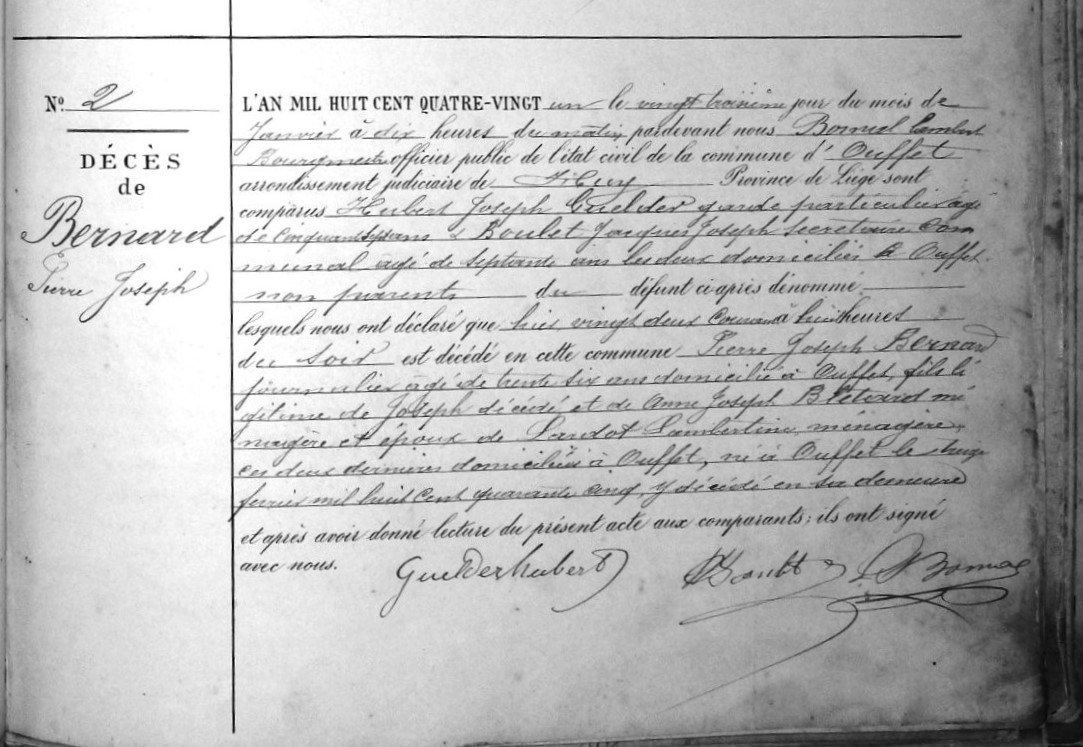 Nº 2
DÉCÈS
de
Bernard
Pierre Joseph
L'AN MIL HUIT CENT QUATRE-VINGT un le vingt troisième jour du mois de
Janvier à dix heures du matin pardevant nous Bomal Lambert
Bourgmestre officier public de l'état civil de la commune d' Ouffet
arrondissement judiciaire de Huy Province de Liége sont
comparus Hubert Joseph Guelder garde particulier âgé
de cinquante sept ans & Boulet Jacques Joseph Secrétaire Com
munal âgé de septante ans les deux domiciliés à Ouffet.
non parents du défunt ci-après dénommé
lesquels nous ont déclaré que hier vingt deux courant à huit heures
du soir est décédé en cette commune Pierre Joseph Bernard
journalier âgé de trente six ans domicilié à Ouffet, fils lé
gitime de Joseph décédé et de Anne Joseph Bletard mé
nagère et époux de Landot Lambertine ménagère,
ces deux dernières domiciliées à Ouffet, né à Ouffet le
février mil huit cent quarante cinq, y décédé en sa demeure
et après avoir donné lecture du présent acte aux comparants; ils ont signé
avec nous.
Guelder hubert Boulet L Bomal